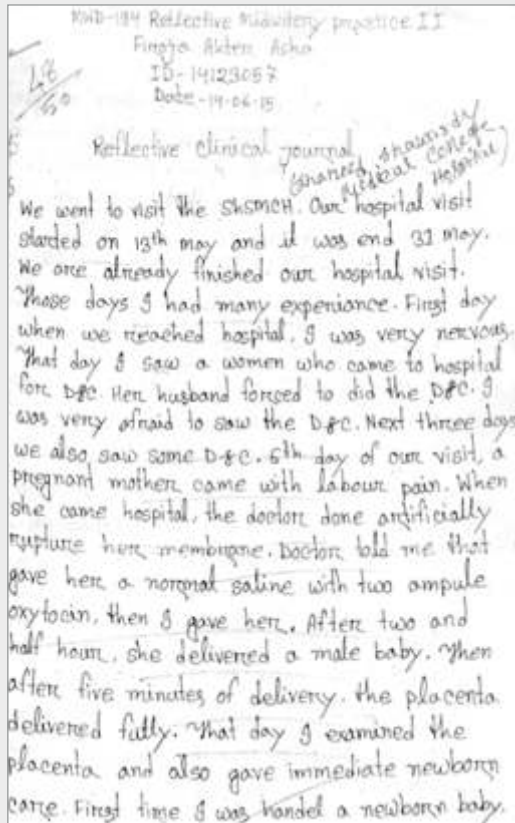 MWD-194 Reflective Midwifery practice II
Firoza Akter Asha
ID-14123057
Date-14-06-15
48/50
Reflective clinical journal
Medical College
We went to visit the ShSMCH. Our hospital visit
started on 13th may and it was end 31 may.
We are already finished our hospital visit.
Those days I had many experiance. First day
when we reached hospital, I was very nervous.
That day I saw a women who came to hospital
for D&C. Her husband forced to did the D&C. I
was very afraid to saw the D&C. Next three days
we also saw some D&C. 5th day of our visit, a
pregnant mother came with labour pain. When
she came hospital, the doctor done artificially
rupture her membrane. Doctor told me that
gave her a normal saline with two ampule
oxytocin, then I gave her. After two and
half hour, she delivered a male baby. Then
after five minutes of delivery. the placenta
delivered fully. That day I examined the
placenta and also gave immediate newborn
care. First time I was handel a newborn baby.